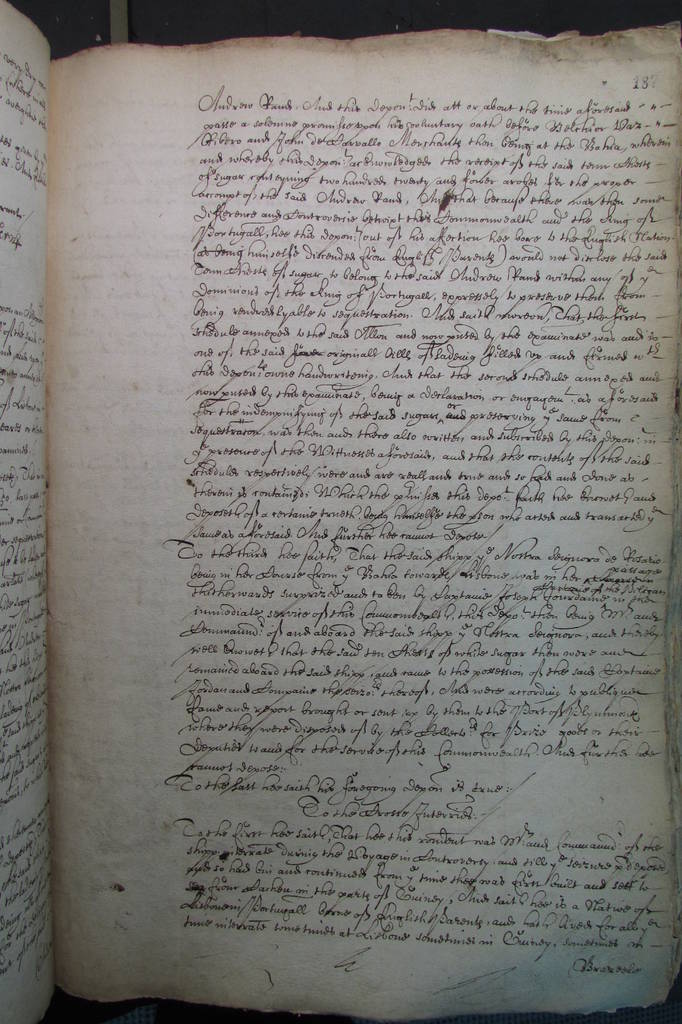 187
Andrew Rand. And this depon:t did att or about the time aforesaid
passe a solemne promisse upon his voluntary oath before Melchior Vaz
Ribero and John de Carvallo Merchants then being at the Bahia, wherein
and whereby this depon:t acknowledged the receipt of the said tenn Chests
of sugar conteyning two hundred twenty and fower arobes for the proper
accompt of the said Andrew Rand, And that because there was then some
difference and Controversie betwixt this Commonwealth and the King of
Portugall, hee this depon:t (out of his affection hee bore to the English Nation
as being himselfe discended from English Parents) would not disclose the said
Tenn Chests of sugar to belong to the said Andrew Rand within any of ye
Dominions of the King of Portugall, expressely to preserve them from
being rendred lyable to sequestration. And saith moreover, That the first
schedule annexed to the said Allon and now shewed by the examinate was and is
one of the said originall Bills of Ladeing filled up and firmed wth
this depon:ts owne handwriteing. And that the second schedule annexed and
now shewed by this examinate, being a declaration or engagem:t as aforesaid
for the indempnifying of the said sugars, and preserving ye same from
sequestration was then and there also written and subscribed by this depon:t in
ye presence of the Wittnesses aforesaid, and that the contents of the said
schedules respectively were and are reall and true and so had and done as
therein is contained: Which the premisses this depo:t saith hee knoweth and
deposeth of a certaine trueth, being himselfe the person who acted and transacted ye
same as aforesaid And further hee cannot depose
To the third hee saith, That the said shipp ye Nostra Seignora de Rosario
being in her Course from ye Bahia towards Lisbone was in her passage
thitherwards surprized and taken by Captaine Joseph Jourdaine in the
immediate service of this Commonwealth, this depo:t then being Mr and
Command:r of and aboard the said shipp ye Nostra Seignora, and thereby
well knoweth that the said ten Chests of white sugar then were and
remained aboard the said shipp, and came to the possession of the said Captaine
Jordan and Companie the seizo:rs thereof, And were according to publique
fame and report brought or sent up by them to the Port of Plymmouth
where they were disposed of by the Collect:rs for Prize goods or their
Deputies to and for the service of this Commonwealth. And further hee
cannot depose:
To the last hee saith his foregoing depon is true:
To the Crosse Interries:
To the first hee saith, That hee this rendent was Mr and Command:r of the
shipp interrate during the Voyage in Controversy, and till ye seizure p:rdeposed
and so had bin and continued from ye time shee was first built and sett to
sea from Cacheu in the parts of Guiney, And saith hee is a Native of
Lisbone in Portugall borne of English Parents, and hath lived for all ye
time interrate sometimes at Lisbone sometimes in Guiney, sometimes in
Brazeele